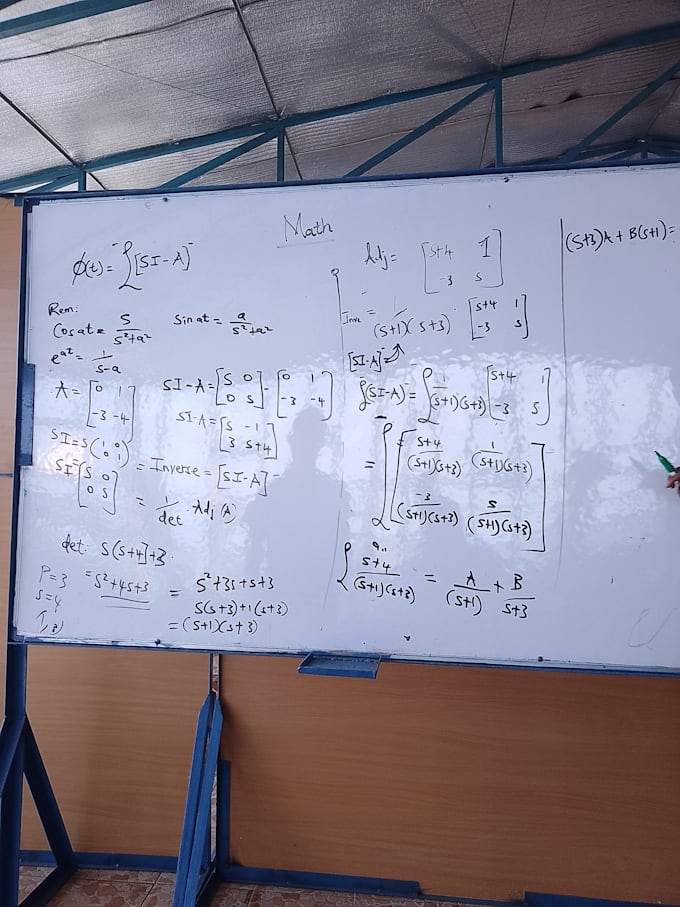 Math
φ(t) = ℒ⁻[SI-A]⁻
Rem:
Cosat = S/(S²+a²)   Sinat = a/(S²+a²)
e^at = 1/(S-a)
A = [0 1; -3 -4]   SI-A = [S 0; 0 S] - [0 1; -3 -4]
SI-A = [S -1; 3 S+4]
SI = S(1 0; 0 1)
SI = [S 0; 0 S]   = Inverse = [SI-A]⁻
= 1/det Adj(A)
det: S(S+4)+3
P=3   = S²+4S+3   = S²+3S+S+3
S=4   S(S+3)+1(S+3)
= (S+1)(S+3)
Adj = [S+4 1; -3 S]
Inve = 1/((S+1)(S+3)) · [S+4 1; -3 S]
[SI-A]⁻ =
ℒ(SI-A)⁻ = ℒ 1/((S+1)(S+3)) [S+4 1; -3 S]
= ℒ⁻ [(S+4)/((S+1)(S+3)) 1/((S+1)(S+3)); -3/((S+1)(S+3)) S/((S+1)(S+3))]
a₁₁
ℒ (S+4)/((S+1)(S+3)) = A/(S+1) + B/(S+3)
(S+3)A + B(S+1) =